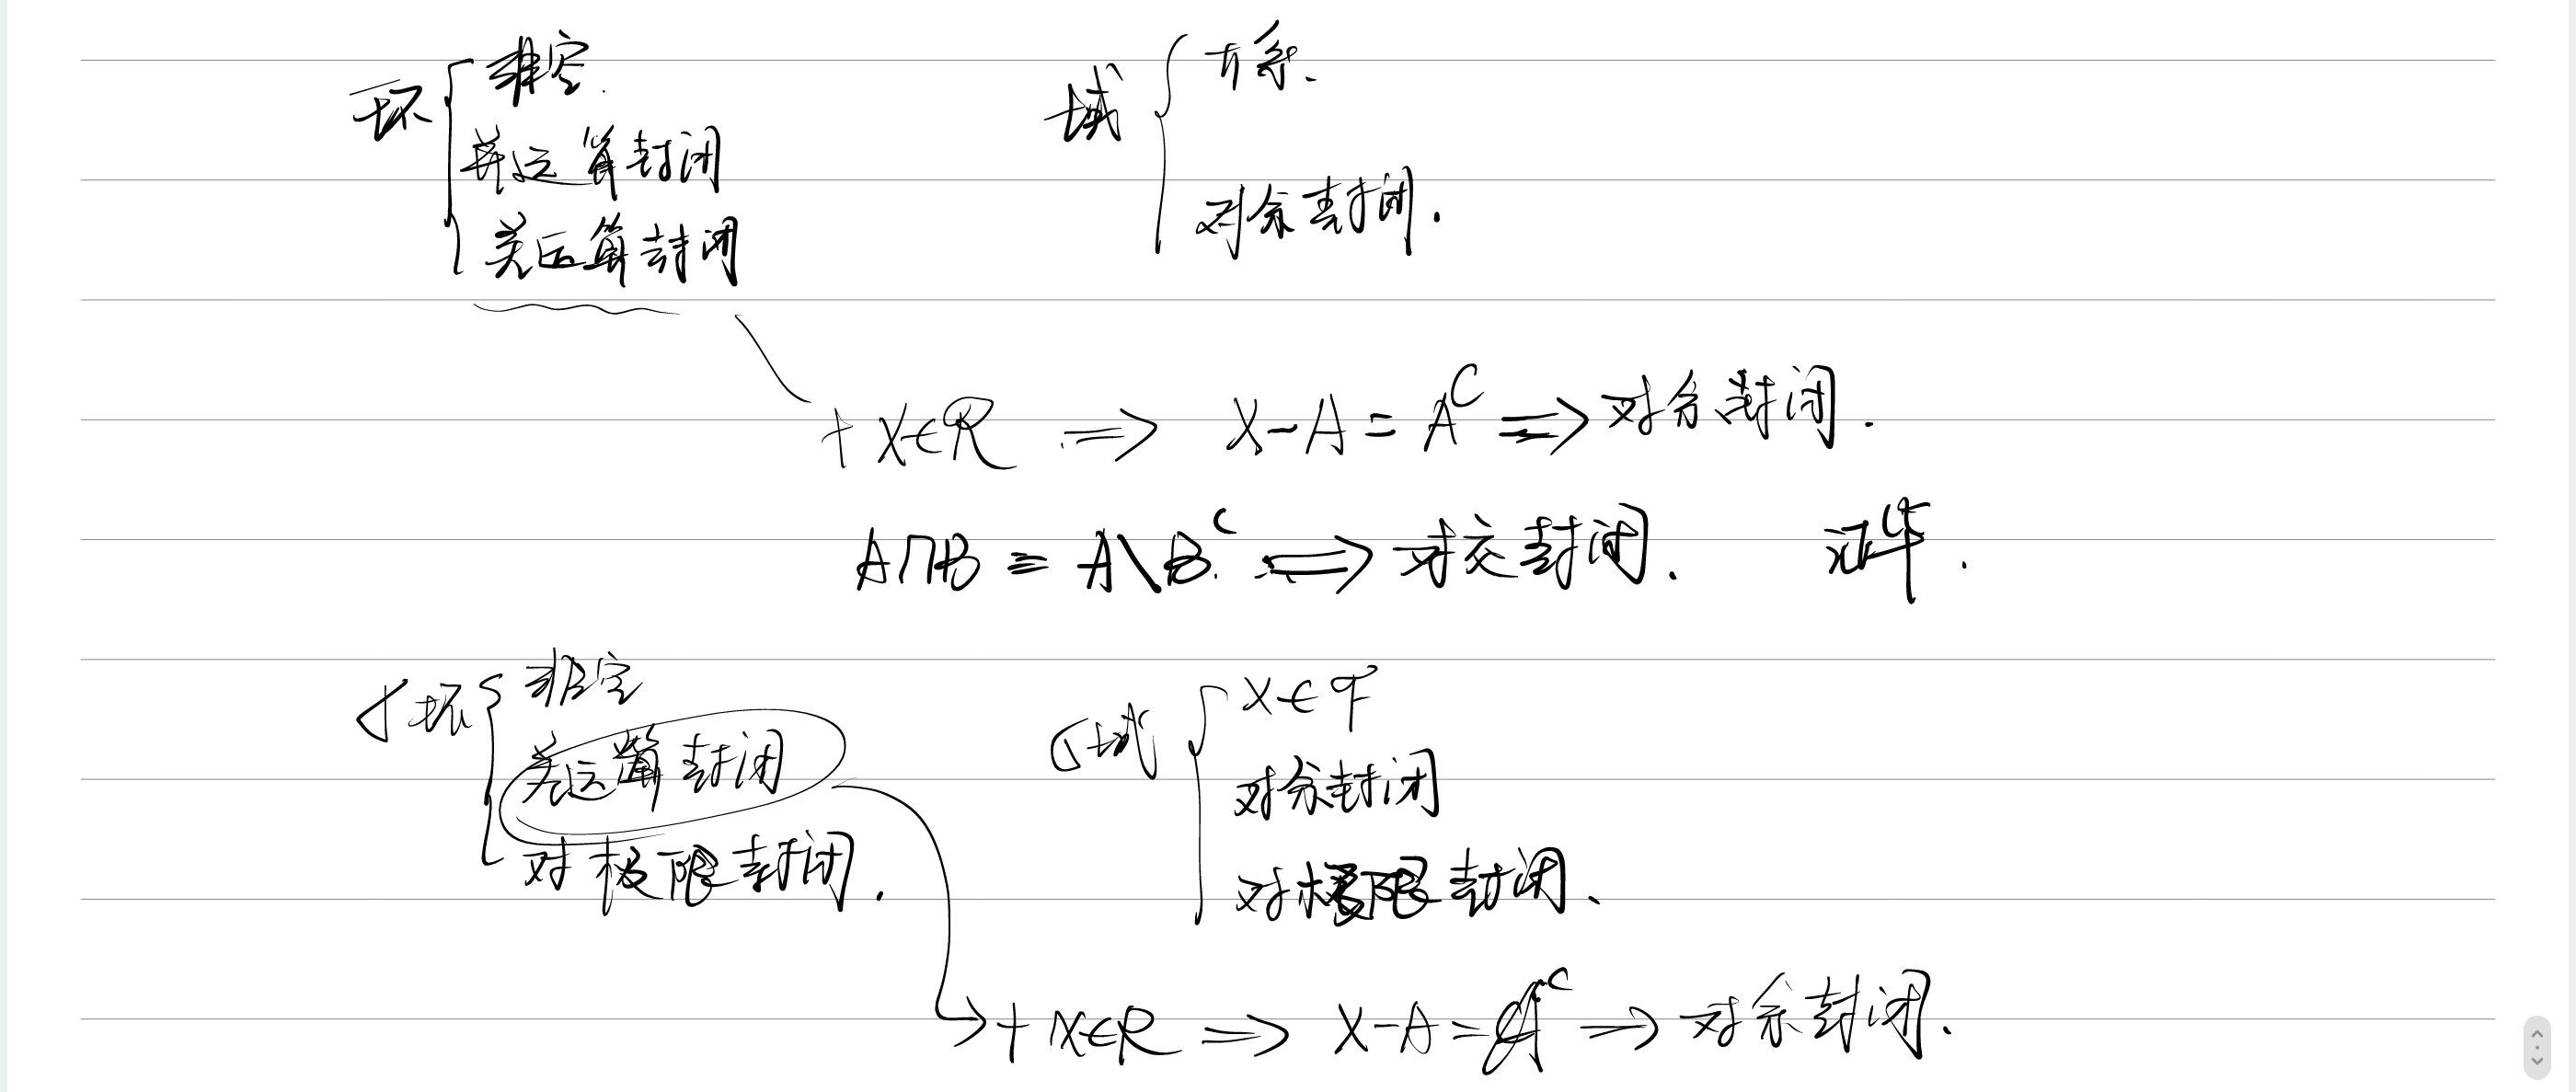 环 { 非空.
并运算封闭
差运算封闭
域 { π系.
对余封闭.
+ X∈R ⟹ X-A = A^C ⟹ 对余封闭.
A∩B = A\B^c ⟹ 对交封闭. 证毕.
σ环 { 非空
差运算封闭
对极限封闭.
σ域 { X∈F
对余封闭
对极限封闭.
+ X∈R ⟹ X-A = A^C ⟹ 对余封闭.